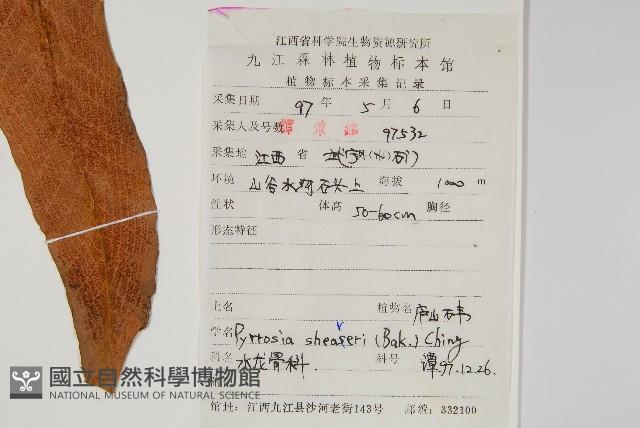 江西省科学院生物资源研究所
九江森林植物标本馆
植物标本采集记录
采集日期 97 年 5 月 6 日
采集人及号数 97532
采集地 江西 省
环境 山谷水沟石头上 海拔 1000 m
性状 体高 50-60cm 胸径
形态特征
土名 植物名 庐山石韦
学名 Pyrrosia sheaseri (Bak.) Ching
v
科名 水龙骨科. 科号 谭97.12.26.
國立自然科學博物館
NATIONAL MUSEUM OF NATURAL SCIENCE
馆址:江西九江县沙河老街143号 邮编:332100